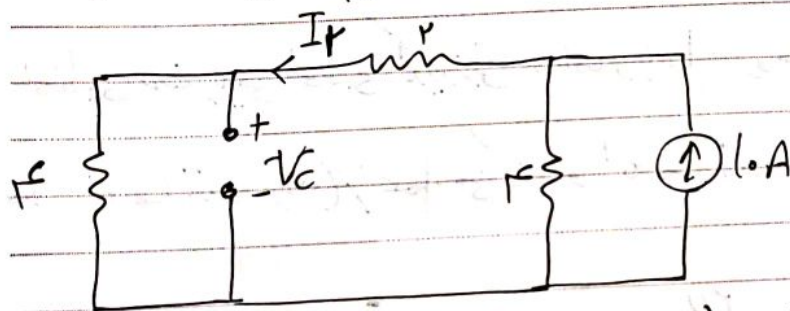 I۲ ۲
+
۴ - Vc ۴ ۱۰ A